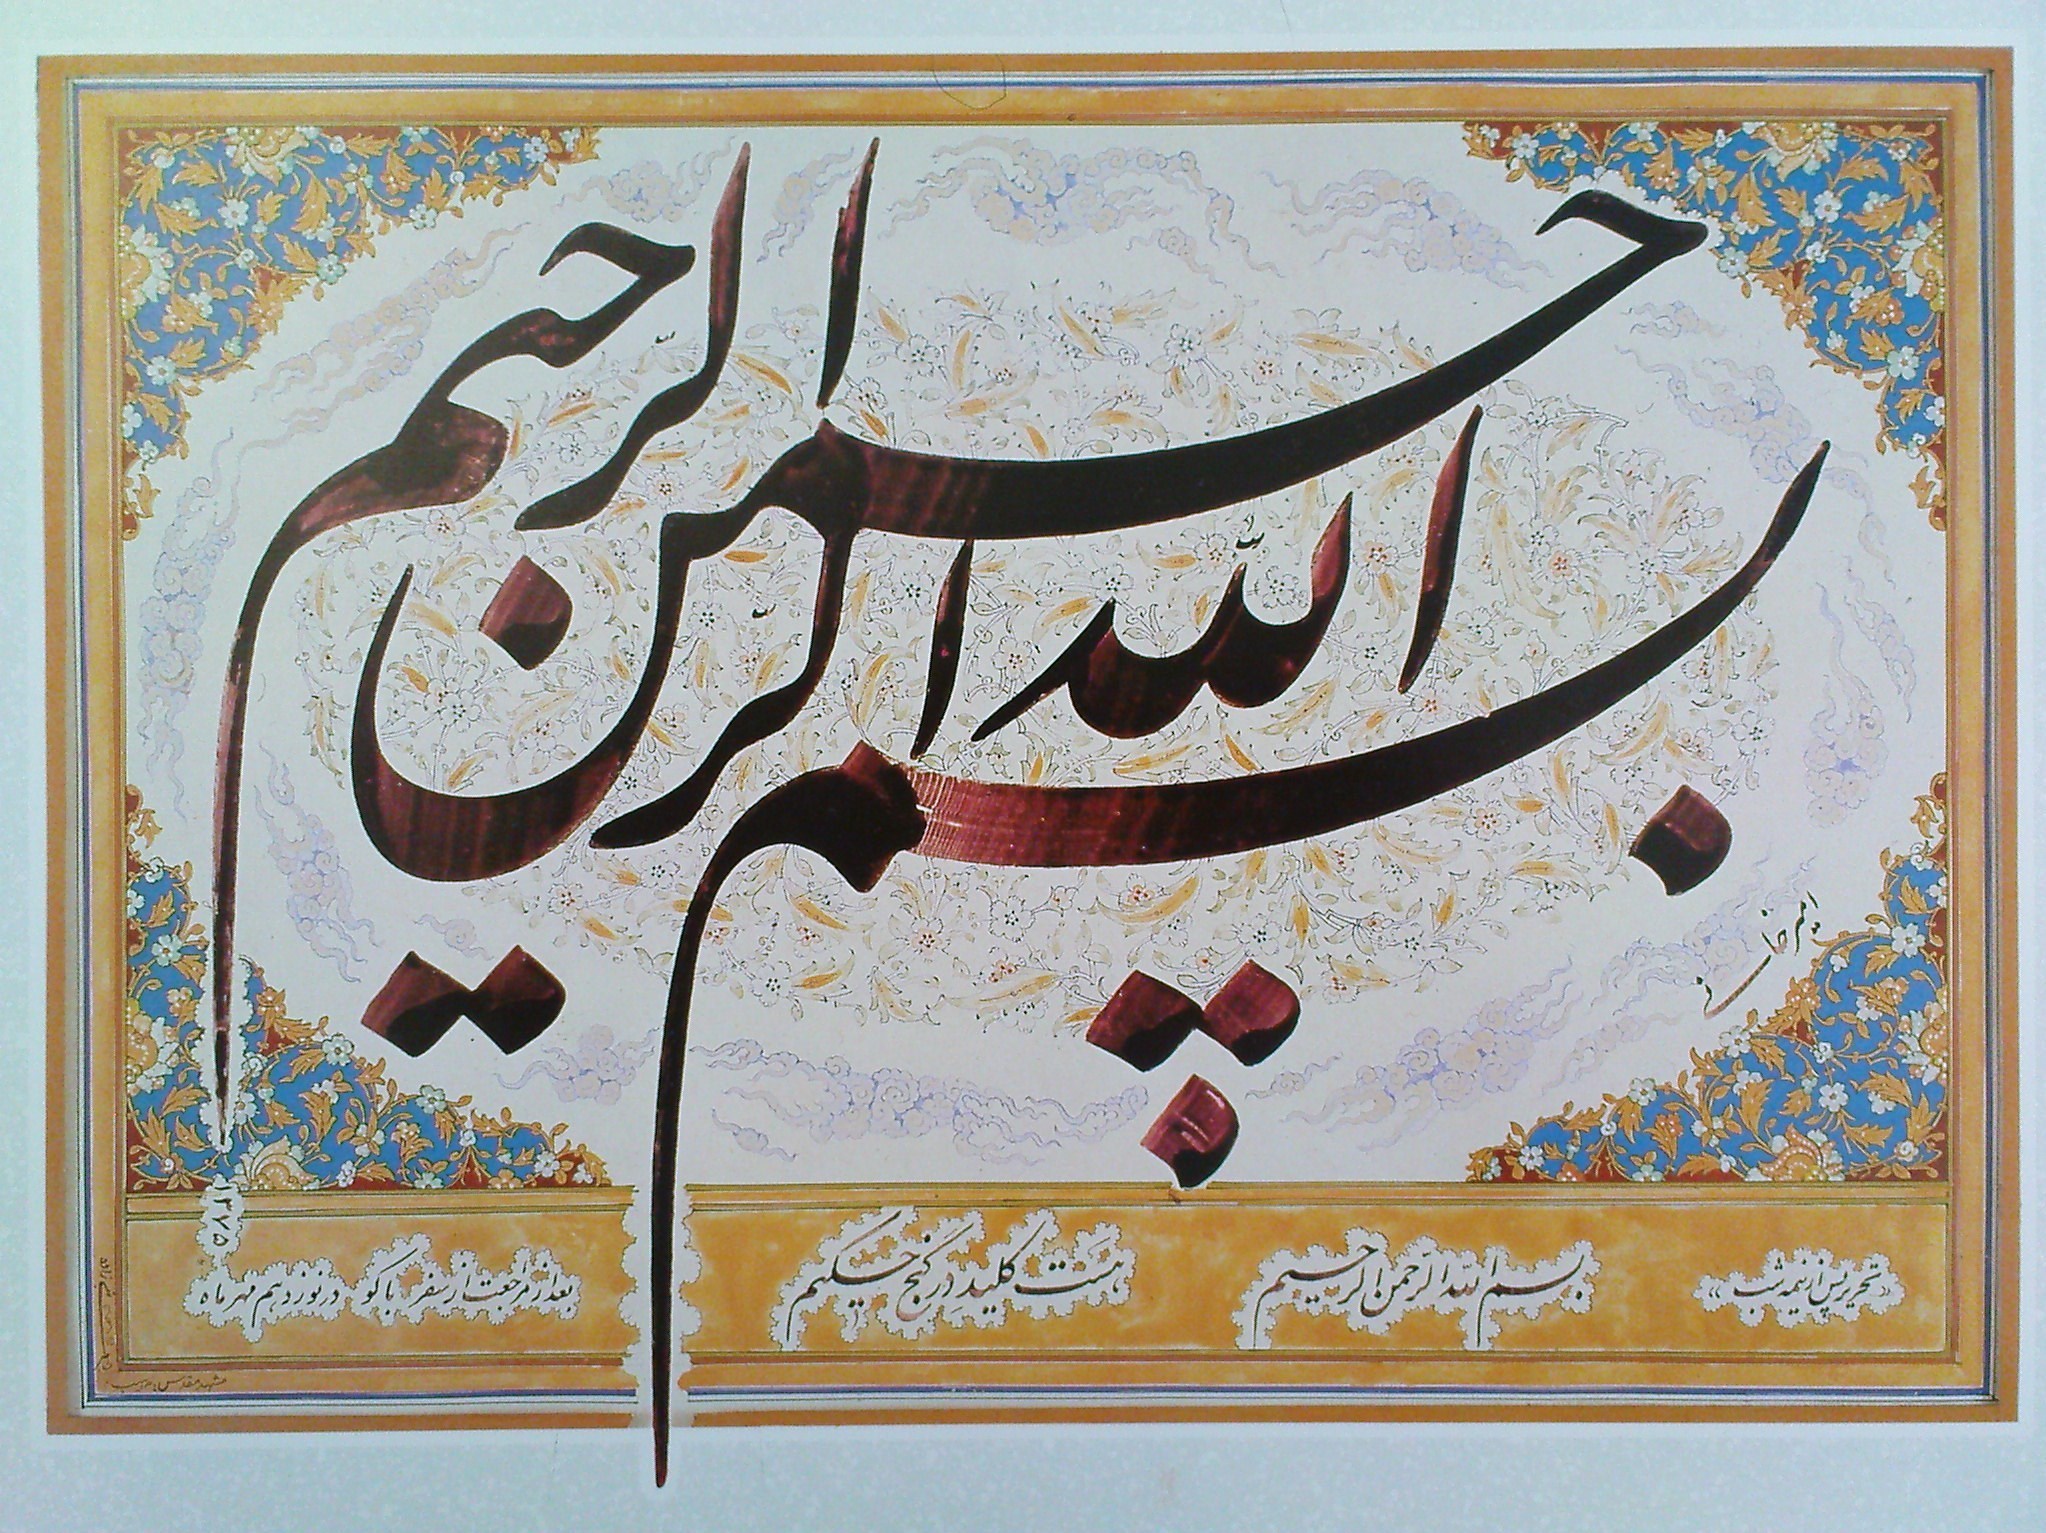 بسم الله الرحمن الرحیم
امیرخانی
«تحریر پس از نیمه شب»
بسم الله الرحمن الرحیم
هست کلید در گنج حکیم
بعد از مراجعت از سفر باکو در نوزدهم مهرماه
۱۳۷۵